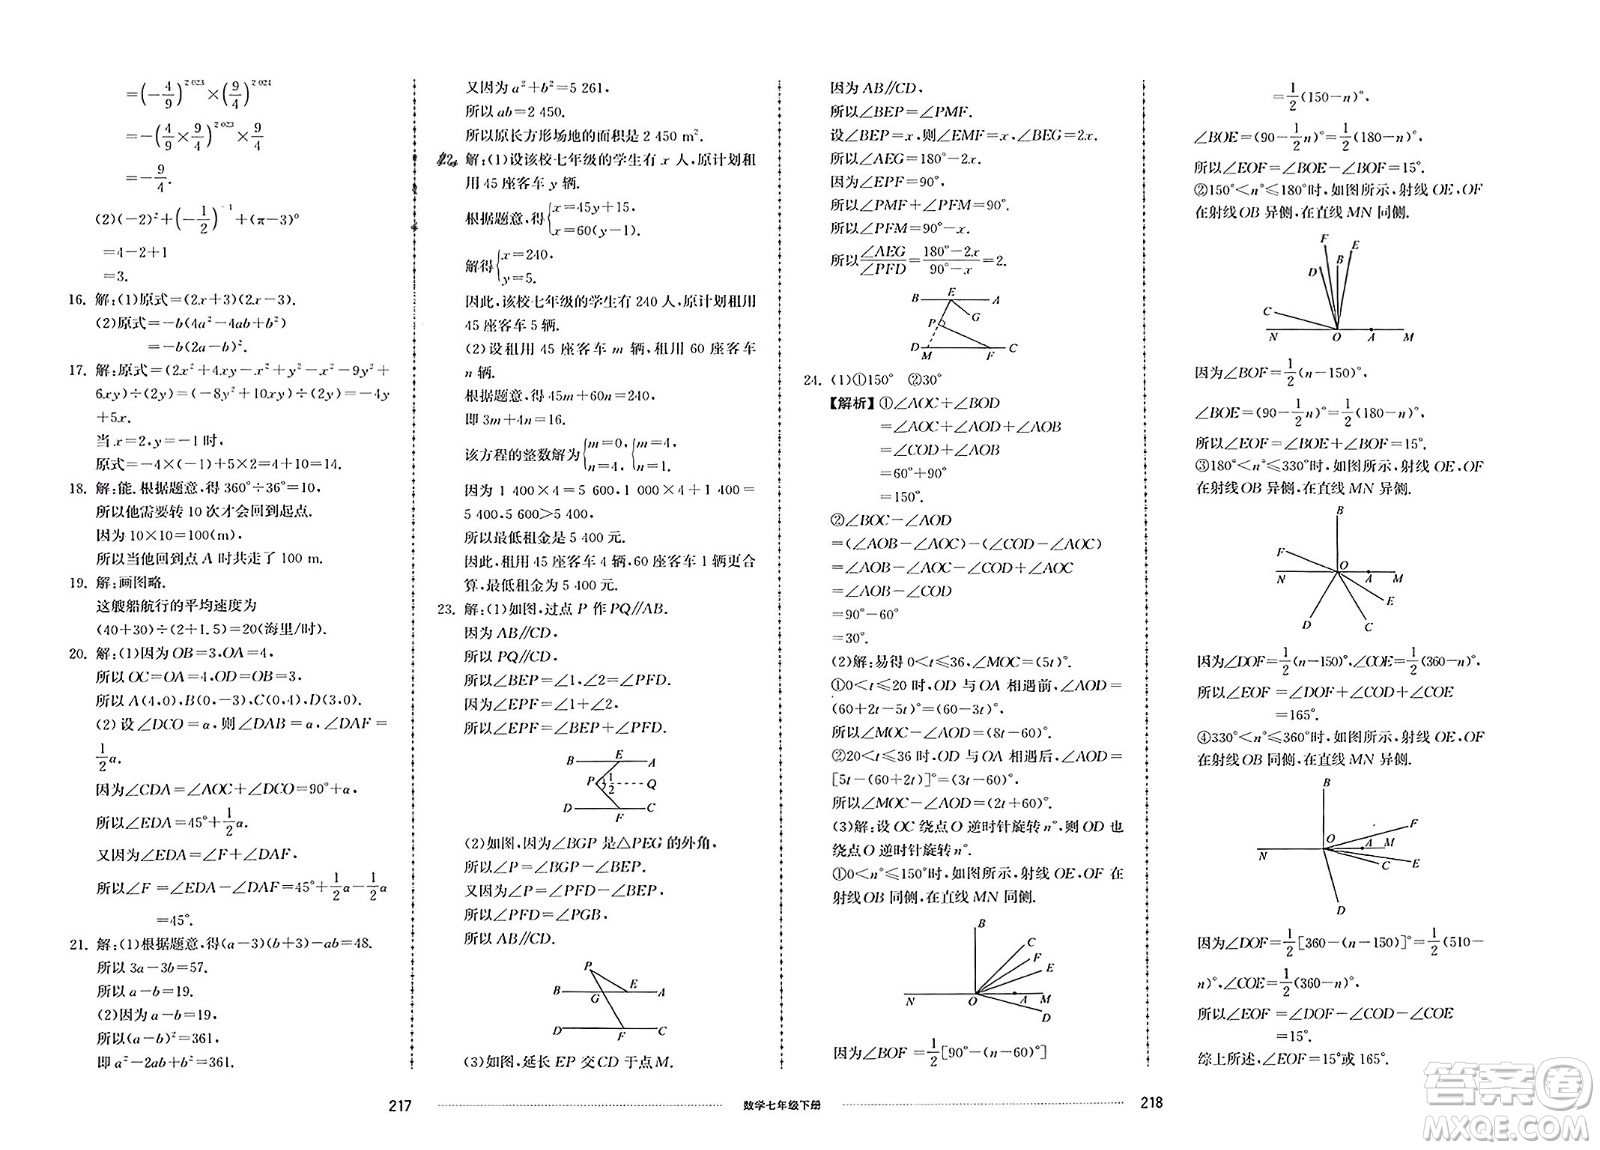 =(-4/9)^2 023×(9/4)^2 024
=-(4/9×9/4)^2 023×9/4
=-9/4.
(2)(-2)²+(-1/2)^-1+(π-3)⁰
=4-2+1
=3.
16. 解:(1)原式=(2x+3)(2x-3).
(2)原式=-b(4a²-4ab+b²)
=-b(2a-b)².
17. 解:原式=(2x²+4xy-x²+y²-x²-9y²+
6xy)÷(2y)=(-8y²+10xy)÷(2y)=-4y
+5x.
当 x=2,y=-1时,
原式=-4×(-1)+5×2=4+10=14.
18. 解:能.根据题意,得 360°÷36°=10,
所以他需要转 10 次才会回到起点.
因为 10×10=100(m),
所以当他回到点 A 时共走了 100 m.
19. 解:画图略.
这艘船航行的平均速度为
(40+30)÷(2+1.5)=20(海里/时).
20. 解:(1)因为 OB=3,OA=4,
所以 OC=OA=4,OD=OB=3,
所以 A(4,0),B(0,-3),C(0,4),D(3,0).
(2) 设∠DCO=α,则∠DAB=α,∠DAF=
1/2α.
因为∠CDA=∠AOC+∠DCO=90°+α,
所以∠EDA=45°+1/2α.
又因为∠EDA=∠F+∠DAF,
所以∠F=∠EDA-∠DAF=45°+1/2α-1/2α
=45°.
21. 解:(1)根据题意,得(a-3)(b+3)-ab=48.
所以 3a-3b=57.
所以 a-b=19.
(2)因为 a-b=19,
所以(a-b)²=361,
即 a²-2ab+b²=361.
217
又因为 a²+b²=5 261,
所以 ab=2 450.
所以原长方形场地的面积是 2 450 m².
22. 解:(1)设该校七年级的学生有 x 人,原计划租
用 45 座客车 y 辆.
根据题意,得{x=45y+15,
x=60(y-1).
解得{x=240,
y=5.
因此,该校七年级的学生有 240 人,原计划租用
45 座客车 5 辆.
(2)设租用 45 座客车 m 辆,租用 60 座客车
n 辆.
根据题意,得 45m+60n=240,
即 3m+4n=16.
该方程的整数解为{m=0,
n=4.{m=4,
n=1.
因为 1 400×4=5 600,1 000×4+1 400=
5 400,5 600>5 400,
所以最低租金是 5 400 元.
因此,租用 45 座客车 4 辆,60 座客车 1 辆更合
算,最低租金为 5 400 元.
23. 解:(1)如图,过点 P 作 PQ//AB.
因为 AB//CD,
所以 PQ//CD,
所以∠BEP=∠1,∠2=∠PFD.
因为∠EPF=∠1+∠2,
所以∠EPF=∠BEP+∠PFD.
B E A
P 1 2 Q
D F C
(2)如图,因为∠BGP 是△PEG 的外角,
所以∠P=∠BGP-∠BEP.
又因为∠P=∠PFD-∠BEP,
所以∠PFD=∠PGB,
所以 AB//CD.
P
B G E A
D F C
(3)如图,延长 EP 交 CD 于点 M.
数学七年级下册
因为 AB//CD,
所以∠BEP=∠PMF.
设∠BEP=x,则∠EMF=x,∠BEG=2x.
所以∠AEG=180°-2x.
因为∠EPF=90°,
所以∠PMF+∠PFM=90°.
所以∠PFM=90°-x.
所以∠AEG/∠PFD=(180°-2x)/(90°-x)=2.
B E A
G
P
D M F C
24. (1)①150° ②30°
【解析】①∠AOC+∠BOD
=∠AOC+∠AOD+∠AOB
=∠COD+∠AOB
=60°+90°
=150°.
②∠BOC-∠AOD
=(∠AOB-∠AOC)-(∠COD-∠AOC)
=∠AOB-∠AOC-∠COD+∠AOC
=∠AOB-∠COD
=90°-60°
=30°.
(2)解:易得 0<t≤36,∠MOC=(5t)°.
①0<t≤20 时,OD 与 OA 相遇前,∠AOD=
(60+2t-5t)°=(60-3t)°,
所以∠MOC-∠AOD=(8t-60)°.
②20<t≤36 时,OD 与 OA 相遇后,∠AOD=
[5t-(60+2t)]°=(3t-60)°.
所以∠MOC-∠AOD=(2t+60)°.
(3)解:设 OC 绕点 O 逆时针旋转 n°,则 OD 也
绕点 O 逆时针旋转 n°.
①0<n°≤150°时,如图所示,射线 OE,OF 在
射线 OB 同侧,在直线 MN 同侧.
B
C
F
E
N O A M
D
因为∠BOF=1/2[90°-(n-60)°]
=1/2(150-n)°,
∠BOE=(90-1/2n)°=1/2(180-n)°,
所以∠EOF=∠BOE-∠BOF=15°.
②150°<n°≤180°时,如图所示,射线 OE,OF
在射线 OB 异侧,在直线 MN 同侧.
F E
D B
C
N O A M
因为∠BOF=1/2(n-150)°,
∠BOE=(90-1/2n)°=1/2(180-n)°,
所以∠EOF=∠BOE+∠BOF=15°.
③180°<n°≤330°时,如图所示,射线 OE,OF
在射线 OB 异侧,在直线 MN 异侧.
B
F
N O A M
E
D C
因为∠DOF=1/2(n-150)°,∠COE=1/2(360-n)°,
所以∠EOF=∠DOF+∠COD+∠COE
=165°.
④330°<n°≤360°时,如图所示,射线 OE,OF
在射线 OB 同侧,在直线 MN 异侧.
B
F
N O A M
C E
D
因为∠DOF=1/2[360-(n-150)]°=1/2(510-
n)°,∠COE=1/2(360-n)°,
所以∠EOF=∠DOF-∠COD-∠COE
=15°.
综上所述,∠EOF=15°或 165°.
218
答案圈
MXQE.COM